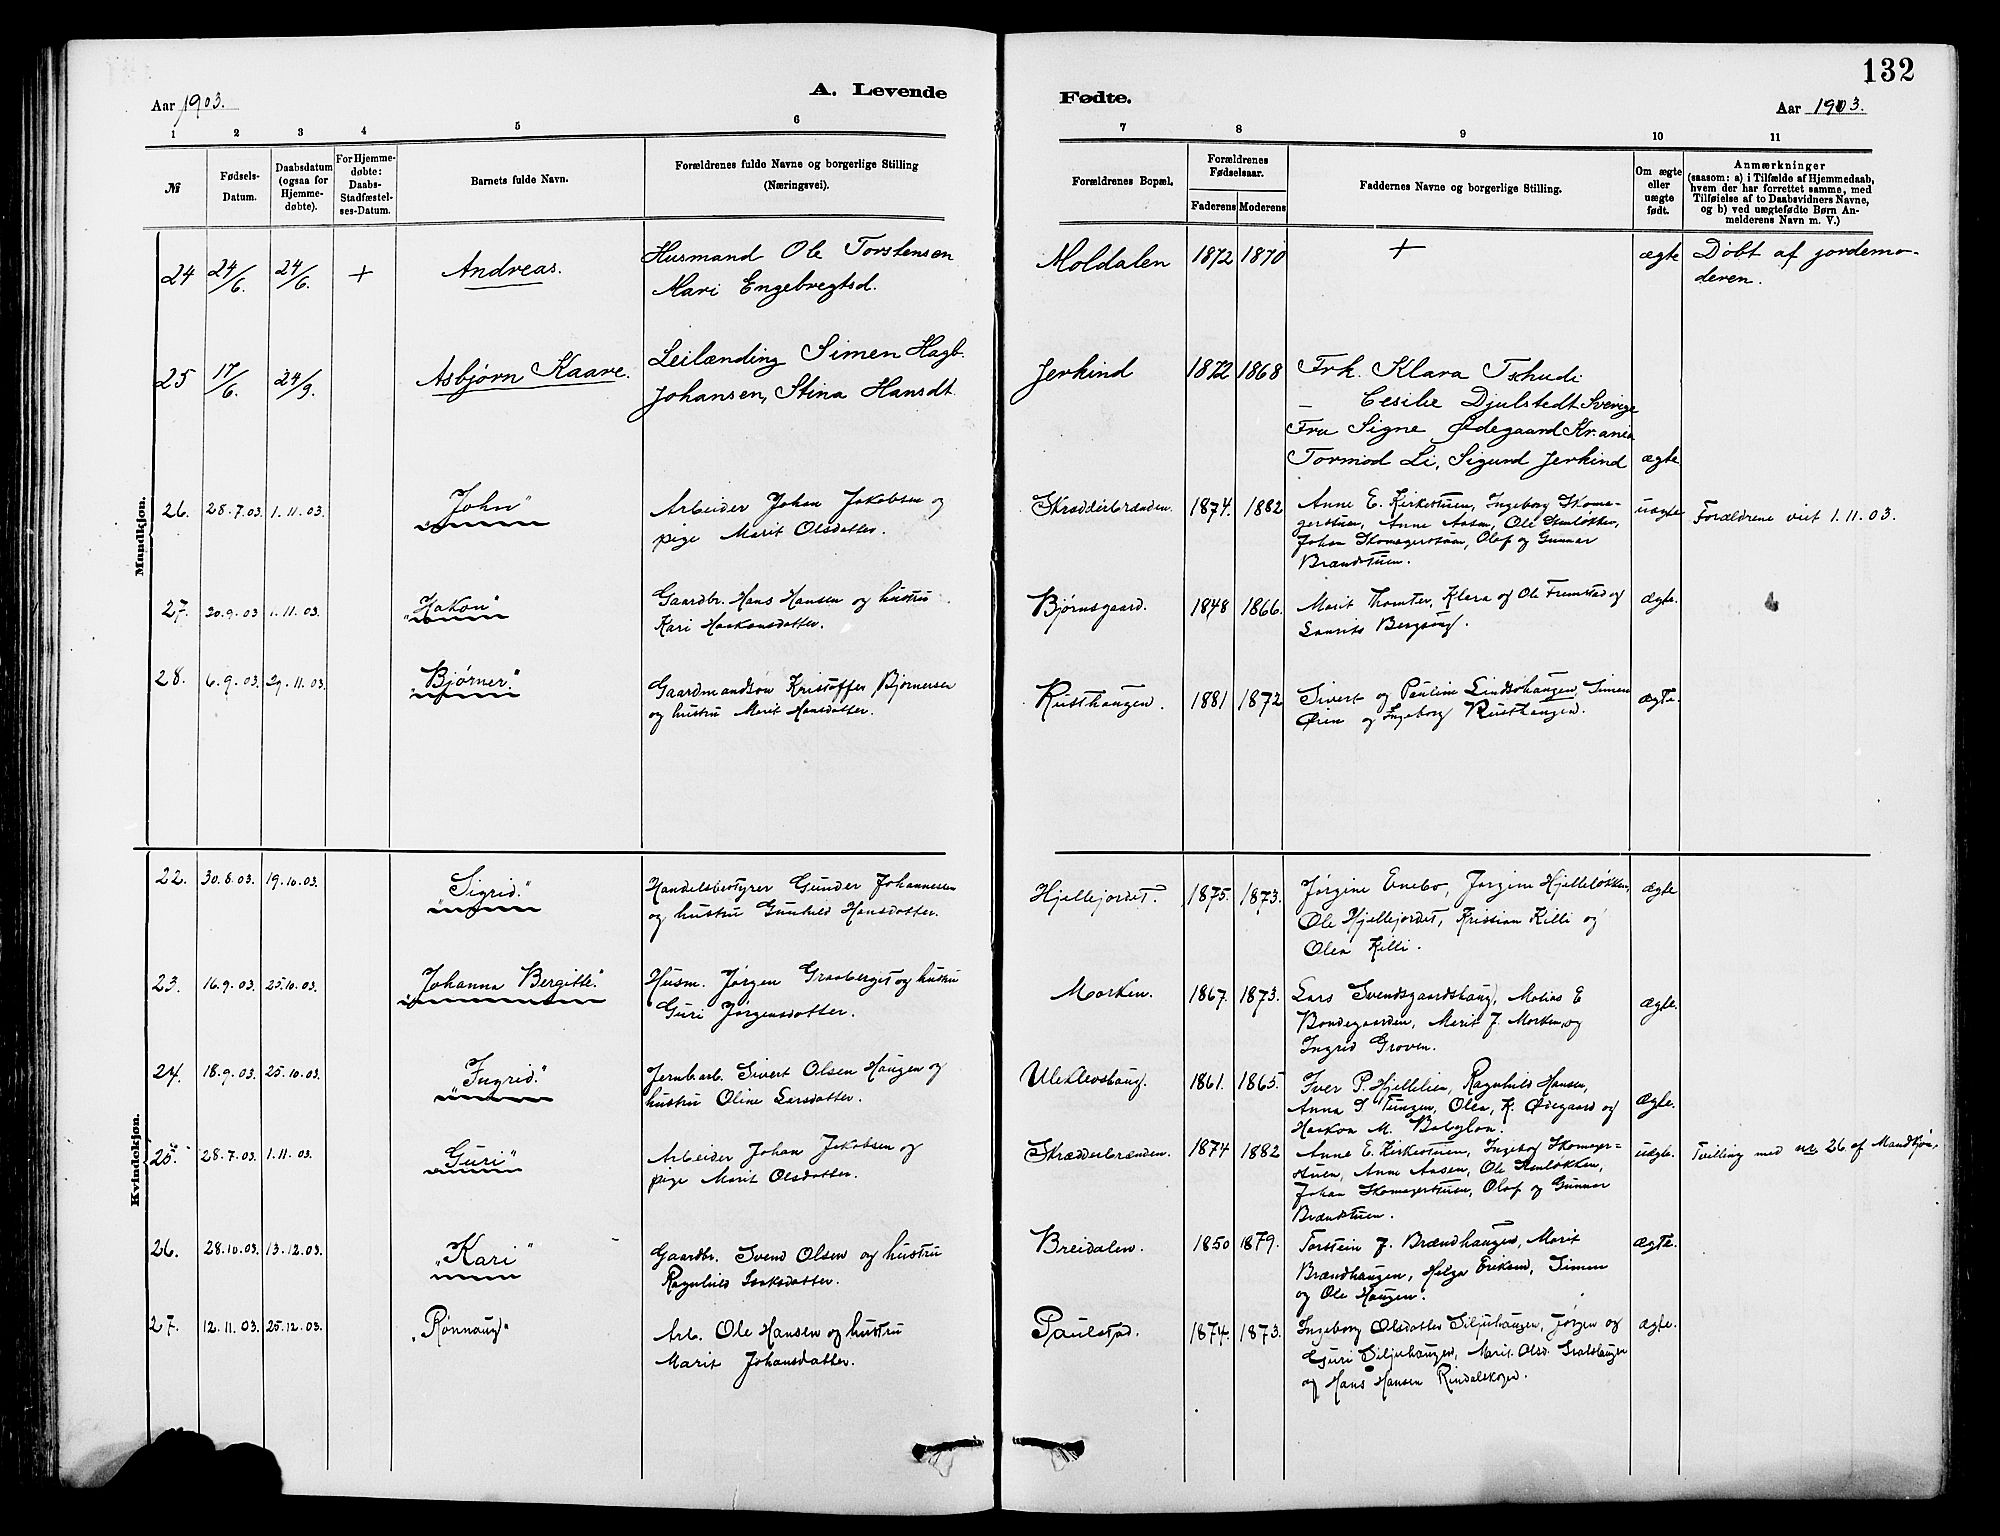 132
Aar 1903.
A. Levende
Fødte.
Aar 1903.
1 2 3 4 5 6 7 8 9 10 11
№
Fødsels-
Datum.
Daabsdatum
(ogsaa for
Hjemme-
døbte).
For Hjemme-
døbte:
Daabs-
Stadfæstel-
ses-Datum.
Barnets fulde Navn.
Forældrenes fulde Navne og borgerlige Stilling
(Næringsvei).
Forældrenes Bopæl.
Forældrenes
Fødselsaar.
Faderens Moderens
Faddernes Navne og borgerlige Stilling.
Om ægte
eller
uægte
født.
Anmærkninger
(saasom: a) i Tilfælde af Hjemmedaab,
hvem der har forrettet samme, med
Tilføielse af to Daabsvidners Navne,
og b) ved uægtefødte Børn An-
melderens Navn m. V.)
Mandkjøn.
24 24/6. 24/6. + Andreas.
Husmand Ole Torstensen
Mari Engebregtsd.
Moldalen 1872 1870 + ægte
Døbt af jordemo-
deren.
25 17/6. 24/9. Asbjørn Kaare.
Leilænding Simen Hagb.
Johansen, Stina Hansdt.
Jerkind 1872 1868
Frk. Klara Tschudi
— Cesilie Djulstedt Sverige
Fru Signe Ødegaard Kr.ania
Tormod Li, Sigurd Jerkind ægte
26. 28.7.03. 1.11.03. "John"
Arbeider Johan Jakobsen og
pige Marit Olsdatter.
Skrædderbrænden. 1874. 1882
Anne E. Kirkestuen, Ingeborg Skoma-
gerstuen, Anne Aasen, Ole Stenløkken,
Johan Skomagerstuen, Olaf og Gunnar
Brændstuen.
uægte Forældrene viet 1.11.03.
27. 20.9.03. 1.11.03. "Hakon"
Gaardbr. Hans Hansen og hustru
Kari Haakonsdatter.
Bjørnsgaard. 1848 1866.
Marit Tromter, Klara og Ole Fremstad og
Laurits Bergseng.
ægte.
28. 6.9.03. 29.11.03. "Bjørner."
Gaardmandsøn Kristoffer Bjørnersen
og hustru Marit Hansdatter.
Rusthaugen. 1881 1872
Sivert og Pauline Lindsøhaugen, Simen
Øien og Ingeborg Rusthaugen.
ægte.
Kvindekjøn.
22. 30.8.03. 19.10.03. "Sigrid."
Handelsbestyrer Gunder Johannesen
og hustru Gunhild Hansdatter.
Hjellejordet. 1875. 1873.
Jørgine Enebo, Jørgine Hjelleløkken,
Ole Hjellejordet, Kristian Killi og
Olea Killi.
ægte
23. 16.9.03. 25.10.03. "Johanna Bergitte."
Husm. Jørgen Graaberget og hustru
Guri Jørgensdatter.
Morken. 1867. 1873.
Lars Svendsgaardshaug, Matias E
Bondegaarden, Marit J. Morken, og
Ingrid Groven.
ægte.
24. 18.9.03. 25.10.03. "Ingrid."
Jernb.arb. Sivert Olsen Haugen og
hustru Oline Larsdatter.
Uleklevshaug. 1861. 1865.
Iver P. Hjellelien, Ragnhild Hansen,
Anna S Tungen, Olea, K. Ødegaard og
Haakon M. Babylon.
ægte.
25. 28.7.03. 1.11.03. "Guri"
Arbeider Johan Jakobsen og
pige Marit Olsdatter.
Skrædderbrænden. 1874 1882
Anne E. Kirkestuen, Ingeborg Skomager-
stuen, Anne Aasen, Ole Stenløkken,
Johan Skomagerstuen, Olof og Gunnar
Brændstuen.
uægte. Tvilling med nr 26 af Mandkjøn.
26. 28.10.03. 13.12.03. "Kari"
Gaardbr. Svend Olsen og hustru
Ragnhild Isaksdatter.
Breidalen. 1850 1879.
Torstein J. Brændhaugen, Marit
Brændhaugen, Helga Eriksen, Simen
og Ole Haugen.
ægte.
27. 12.11.03. 25.12.03. "Rønnaug"
Arb. Ole Hansen og hustru
Marit Johansdatter.
Paulstad. 1874. 1873.
Ingeborg Olsdatter Siljuhaugen, Jørgen og
Guri Siljuhaugen, Marit Olsd.
og Hans Hansen Rindalskoged.
ægte.